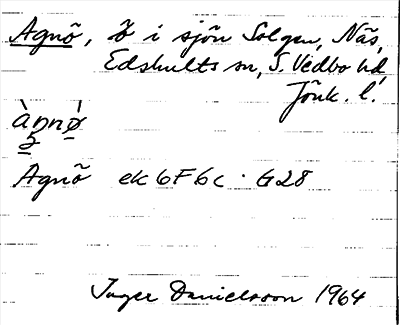 Agnö, ö i sjön Solgen, Näs,
Edshults sn, S. Vedbo hd,
Jönk. l.
àŋnǿ
2
Agnö ek 6F6c · G28
Inger Danielsson 1964